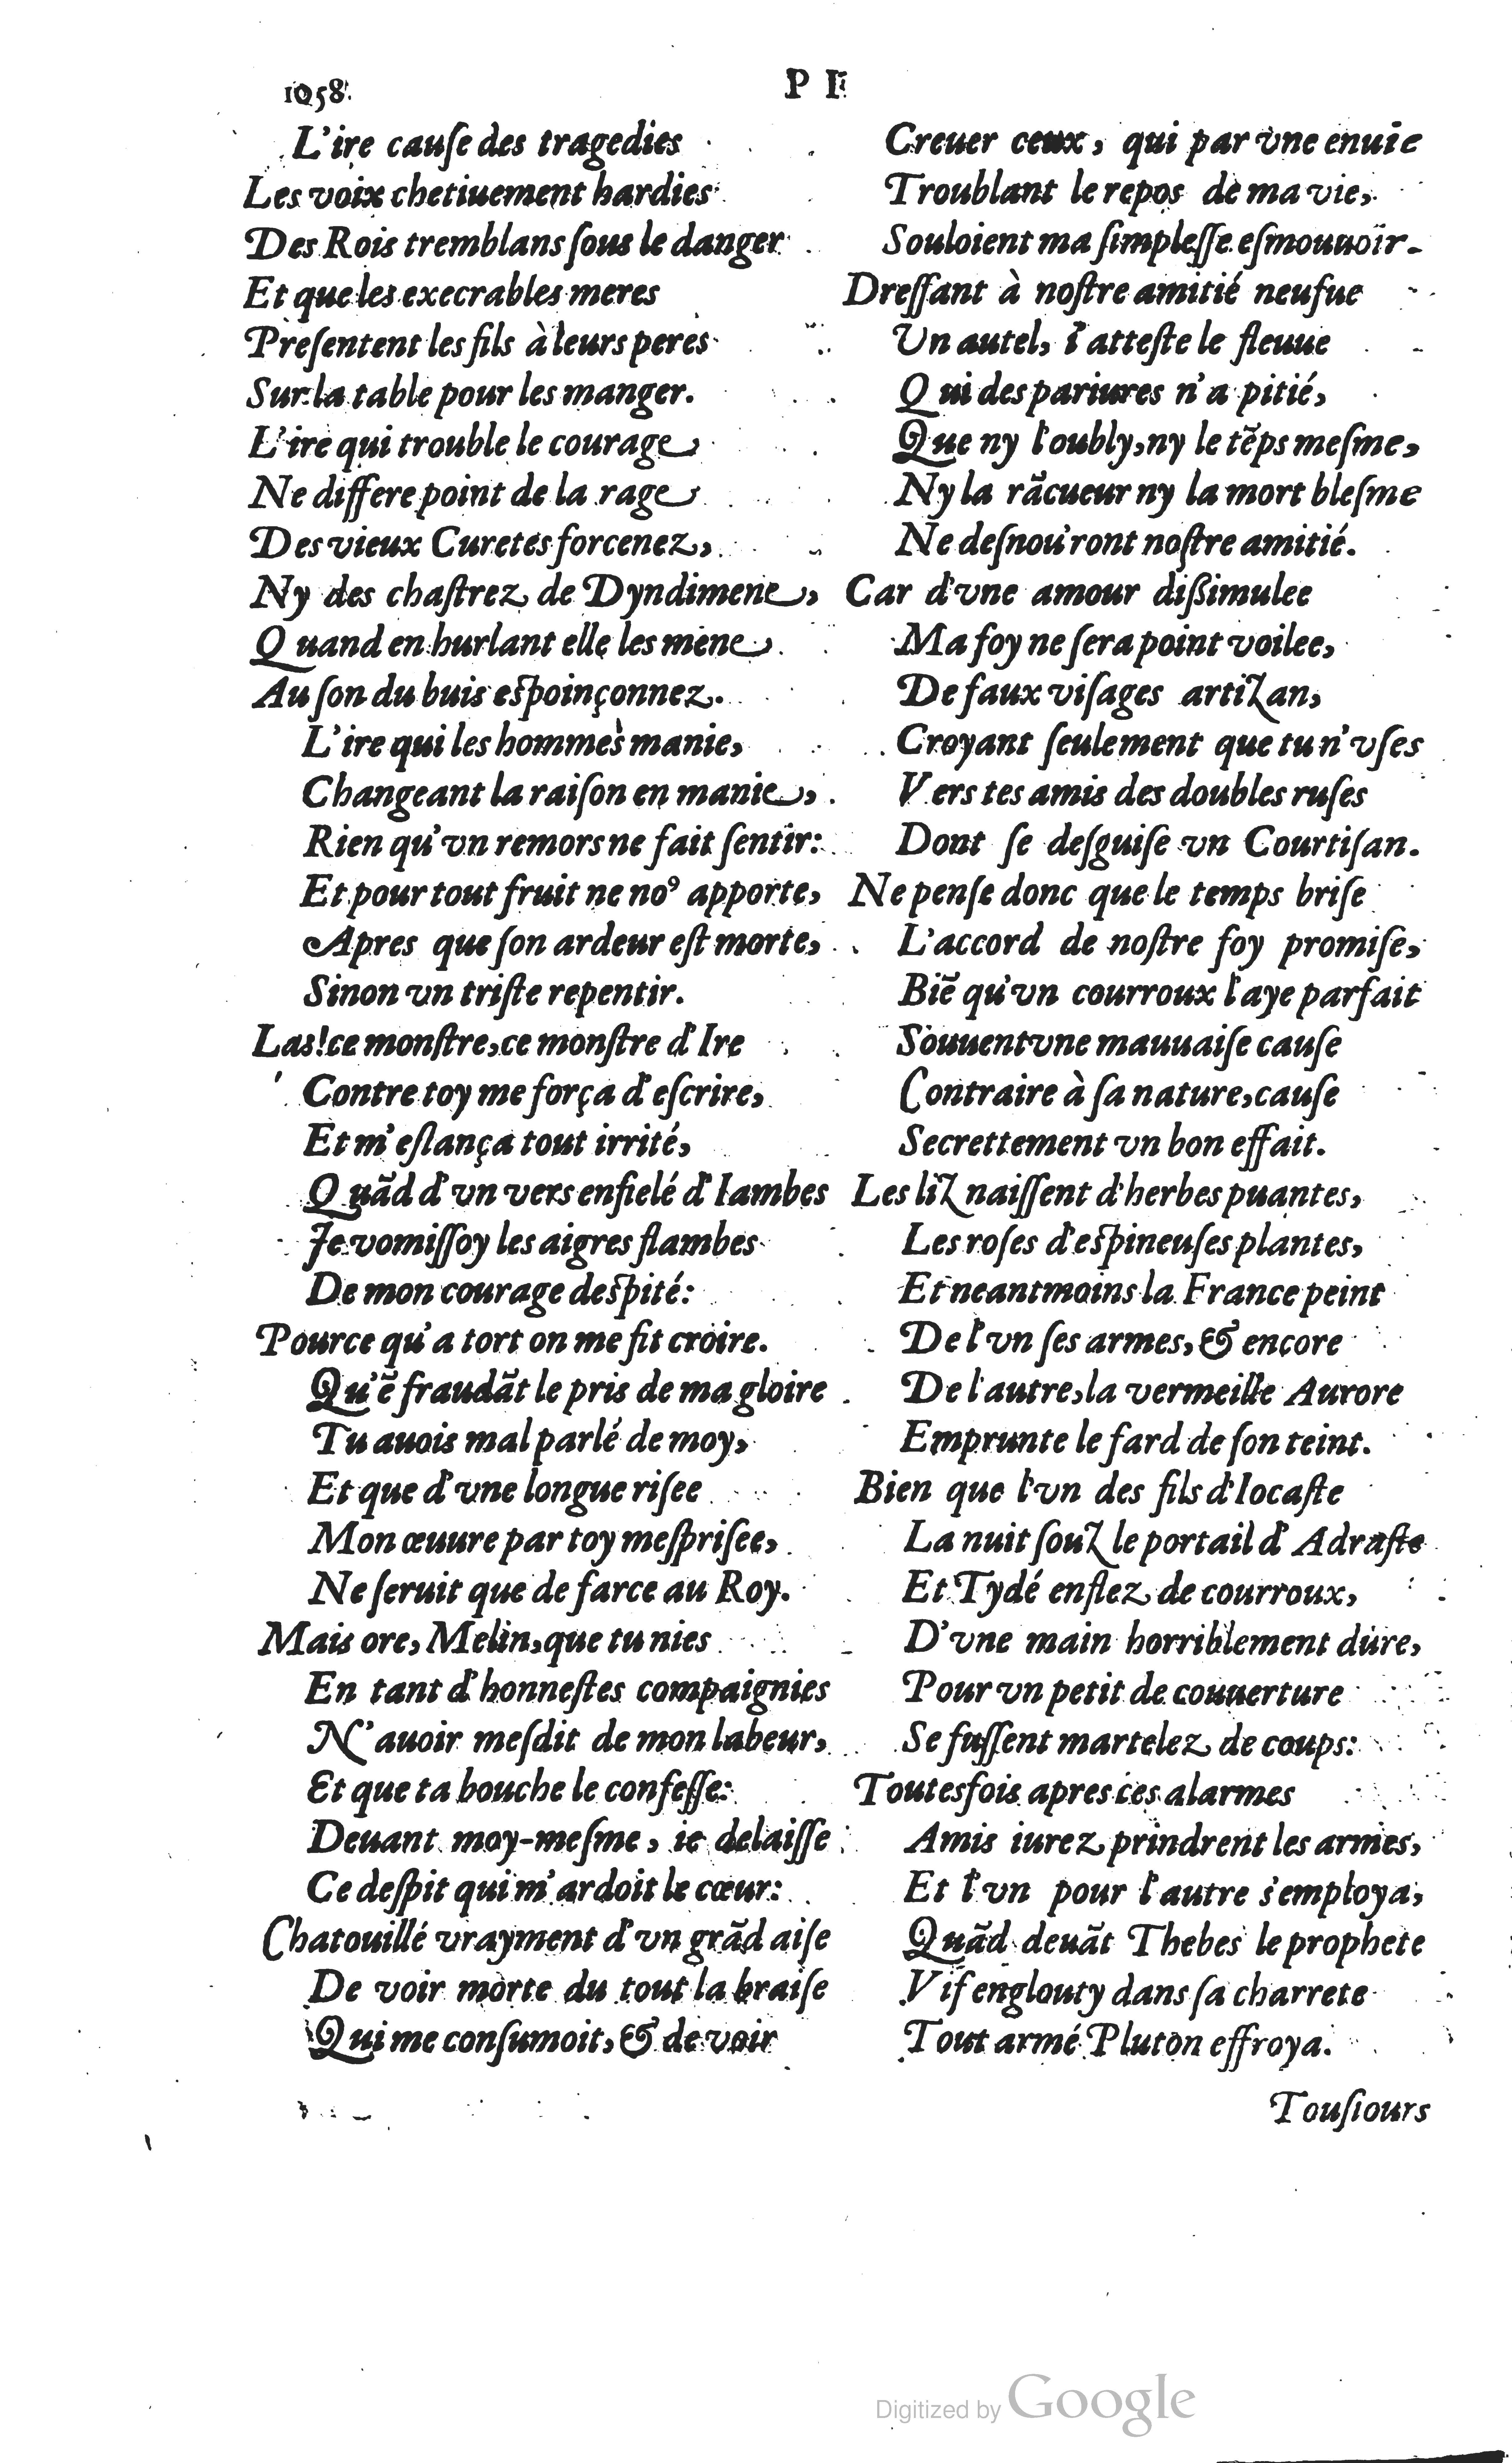 1058
P I
L'ire cauſe des tragedies
Les voix chetiuement hardies
Des Rois tremblans ſous le danger
Et que les execrables meres
Preſentent les fils à leurs peres
Sur la table pour les manger.
L'ire qui trouble le courage
Ne differe point de la rage
Des vieux Curetes forcenez,
Ny des chaſtrez de Dyndimene,
Quand en hurlant elle les mene
Au ſon du buis eſpoinçonnez.
L'ire qui les hommes manie,
Changeant la raiſon en manie,
Rien qu'vn remors ne fait ſentir:
Et pour tout fruit ne noꝰ apporte,
Apres que ſon ardeur eſt morte,
Sinon vn triſte repentir.
Las!ce monſtre,ce monſtre d'Ire
Contre toy me força d'eſcrire,
Et m'eſlança tout irrité,
Quãd d'vn vers enfielé d'Iambes
Je vomiſſoy les aigres flambes
De mon courage deſpité:
Pource qu'a tort on me fit croire.
Qu'ẽ fraudãt le pris de ma gloire
Tu auois mal parlé de moy,
Et que d'vne longue riſee
Mon œuure par toy meſpriſee,
Ne ſeruit que de farce au Roy.
Mais ore, Melin,que tu nies
En tant d'honneſtes compaignies
N'auoir meſdit de mon labeur,
Et que ta bouche le confeſſe:
Deuant moy-meſme, ie delaiſſe
Ce deſpit qui m'ardoit le cœur:
Chatouillé vrayment d'vn grãd aiſe
De voir morte du tout la braiſe
Qui me conſumoit, & de voir
Creuer ceux, qui par vne enuie
Troublant le repos de ma vie,
Souloient ma ſimpleſſe eſmouuoir.
Dreſſant à noſtre amitié neufue
Un autel, i'atteſte le fleuue
Qui des pariures n'a pitié,
Que ny l'oubly,ny le tẽps meſme,
Ny la rãcueur ny la mort bleſme
Ne deſnou'ront noſtre amitié.
Car d'vne amour dißimulee
Ma foy ne ſera point voilee,
De faux viſages artizan,
Croyant ſeulement que tu n'vſes
Vers tes amis des doubles ruſes
Dont ſe deſguiſe vn Courtiſan.
Ne penſe donc que le temps briſe
L'accord de noſtre foy promiſe,
Biẽ qu'vn courroux l'aye parfait
Souuent vne mauuaiſe cauſe
Contraire à ſa nature,cauſe
Secrettement vn bon effait.
Les liz naiſſent d'herbes puantes,
Les roſes d'eſpineuſes plantes,
Et neantmoins la France peint
De l'vn ſes armes, & encore
De l'autre,la vermeille Aurore
Emprunte le fard de ſon teint.
Bien que l'vn des fils d'Iocaſte
La nuit ſouz le portail d'Adraſte
Et Tydé enflez de courroux,
D'vne main horriblement dure,
Pour vn petit de couuerture
Se fuſſent martelez de coups:
Toutesfois apres ces alarmes
Amis iurez prindrent les armes,
Et l'vn pour l'autre s'employa,
Quãd deuãt Thebes le prophete
Vif englouty dans ſa charrete
Tout armé Pluton effroya.
Touſiours
Digitized by Google